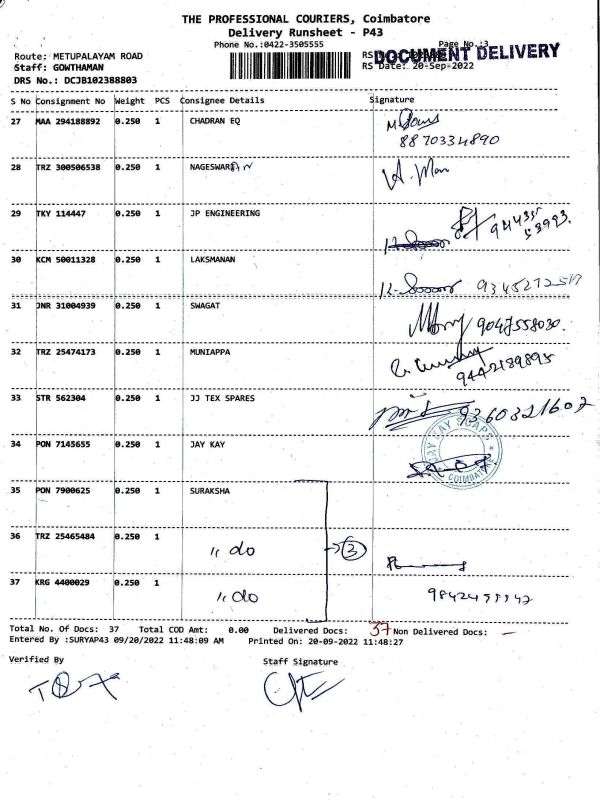 THE PROFESSIONAL COURIERS, Coimbatore
Delivery Runsheet - P43
Phone No.:0422-3505555
Page No.:3
DOCUMENT DELIVERY
Route: METUPALAYAM ROAD
Staff: GOWTHAMAN
RS Date: 20-Sep-2022
DRS No.: DCJB102388803
S No Consignment No Weight PCS Consignee Details Signature
27 MAA 294188892 0.250 1 CHADRAN EQ
8870334890
28 TRZ 300506538 0.250 1 NAGESWARAN
29 TKY 114447 0.250 1 JP ENGINEERING
30 KCM 50011328 0.250 1 LAKSMANAN
31 JNR 31004939 0.250 1 SWAGAT
9047558030.
32 TRZ 25474173 0.250 1 MUNIAPPA
9442189895
33 STR 562304 0.250 1 JJ TEX SPARES
9360321607
34 PON 7145655 0.250 1 JAY KAY
JAY KAY
COIMBATORE
35 PON 7900625 0.250 1 SURAKSHA
36 TRZ 25465484 0.250 1 ,, do
3
37 KRG 4400029 0.250 1 ,, do
Total No. Of Docs: 37 Total COD Amt: 0.00 Delivered Docs: 37 Non Delivered Docs: -
Entered By :SURYAP43 09/20/2022 11:48:09 AM Printed On: 20-09-2022 11:48:27
Verified By Staff Signature